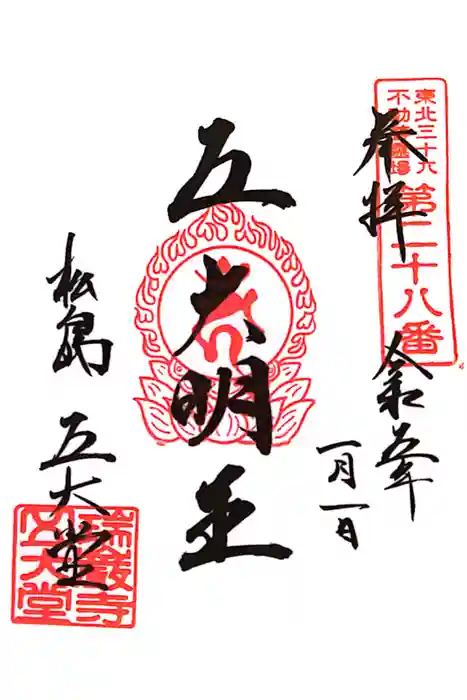 東北三十六
不動尊霊場
第二十八番
奉拝
令和五年
一月一日
五大明王
松島
五大堂
瑞巌寺
五大堂